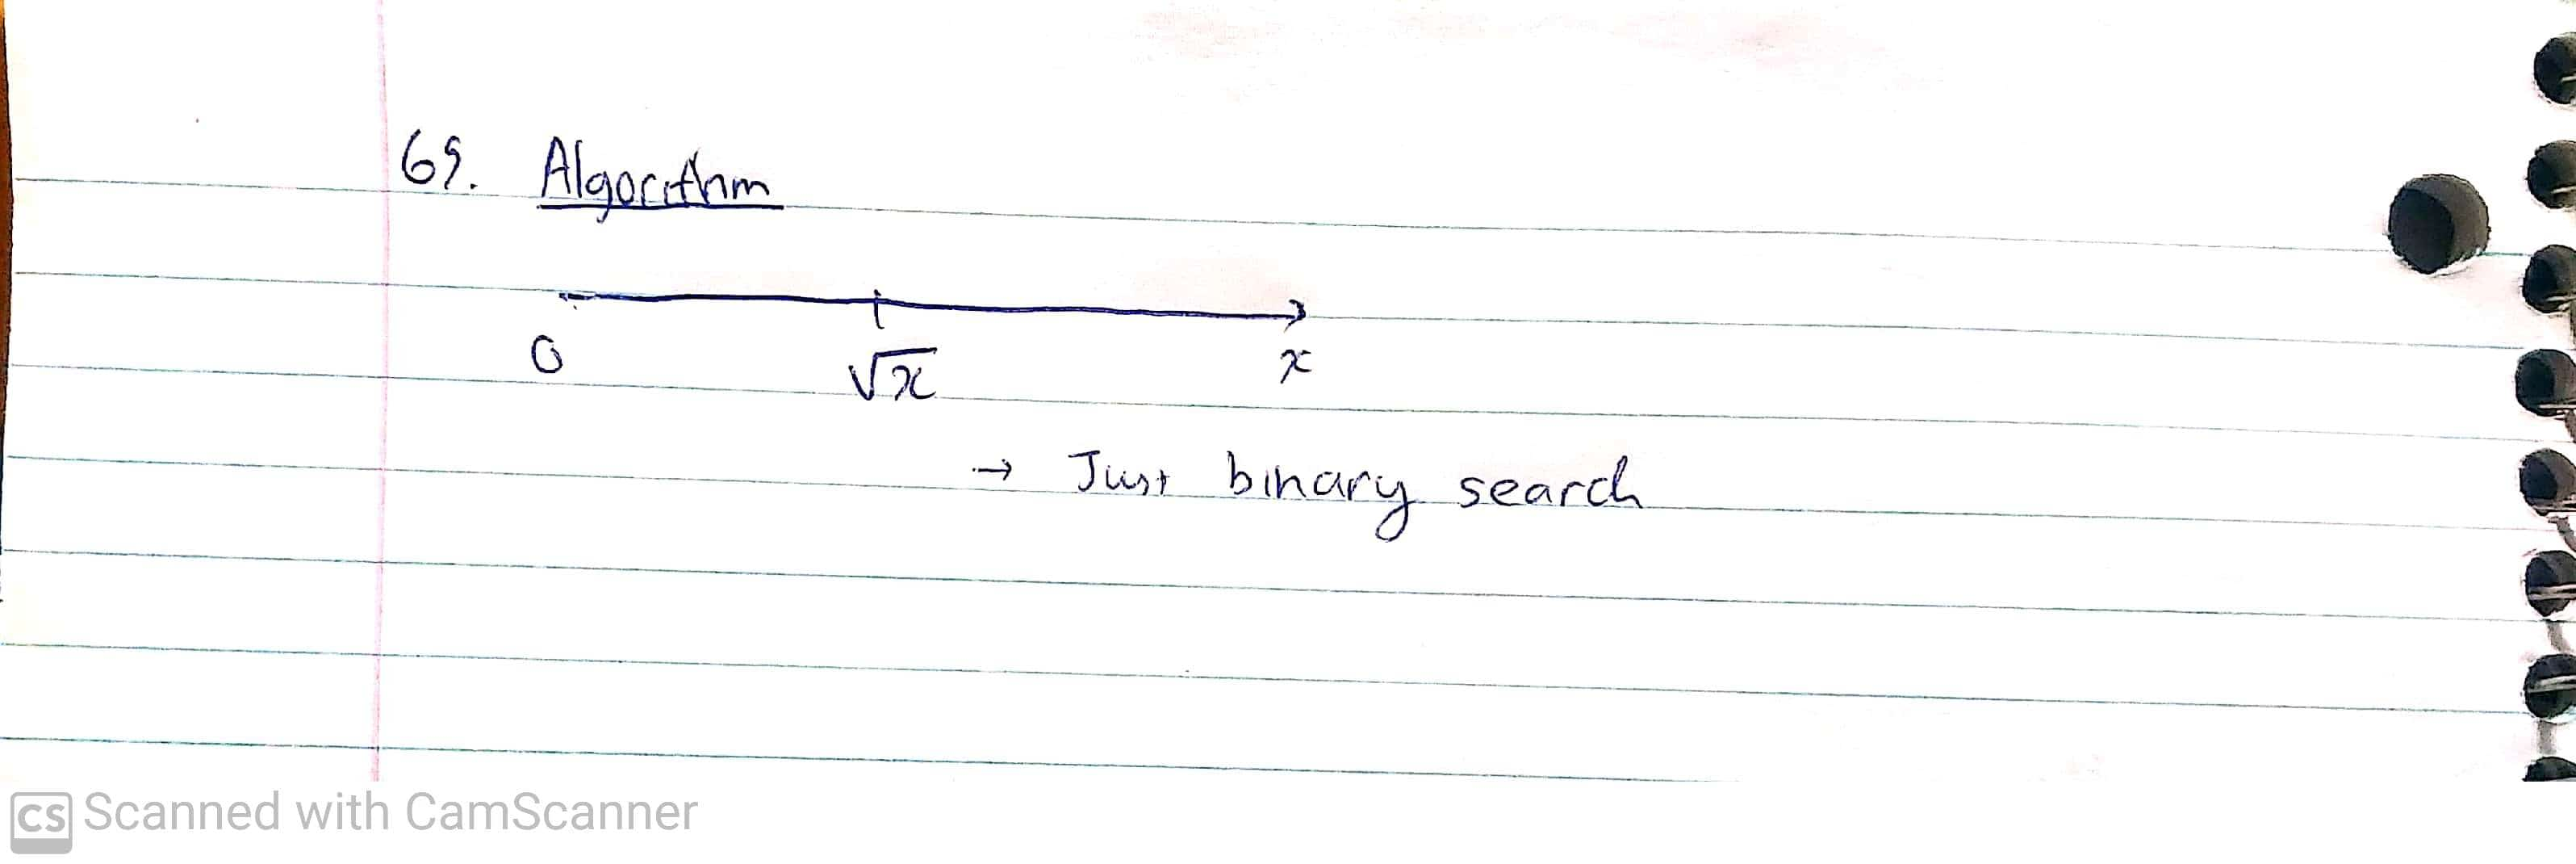 69. Algorithm
0 √x x
→ Just binary search
CS Scanned with CamScanner